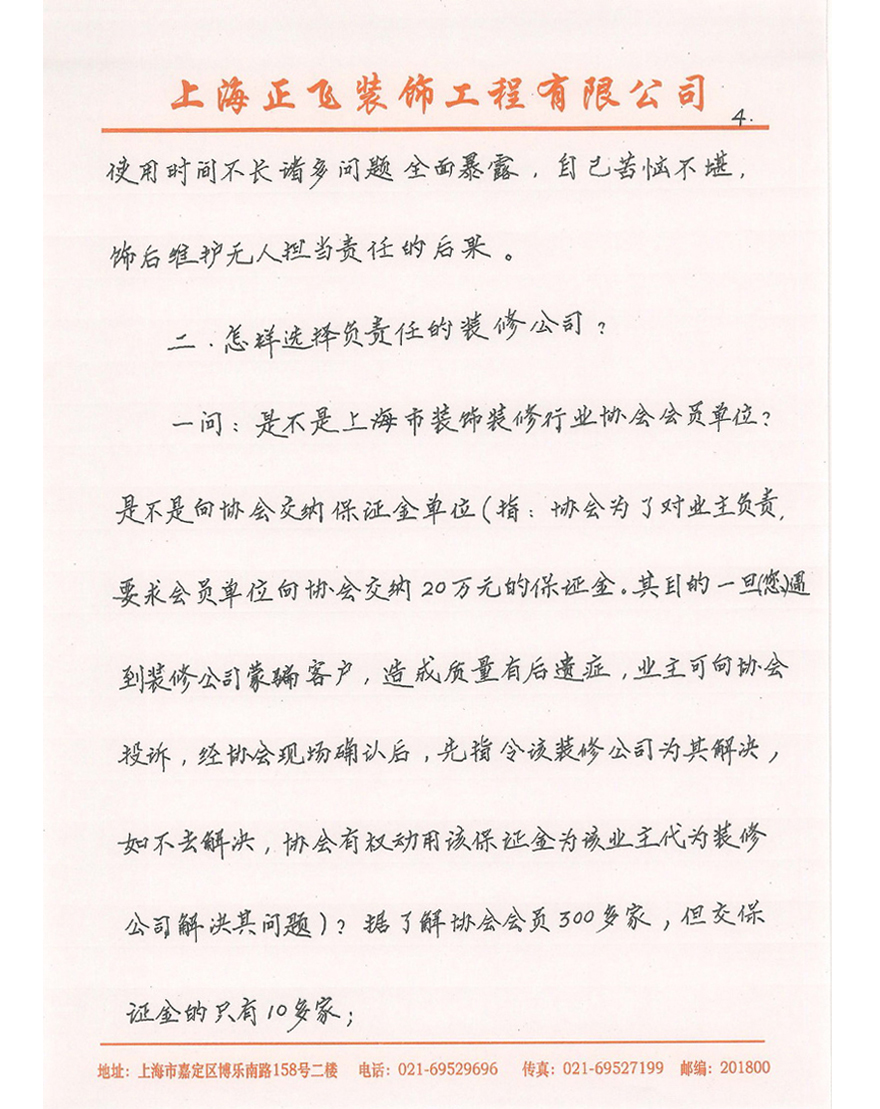 上海正飞装饰工程有限公司
4.
使用时间不长诸多问题全面暴露，自己苦恼不堪，
饰后维护无人担当责任的后果。
二．怎样选择负责任的装修公司？
一问：是不是上海市装饰装修行业协会会员单位？
是不是向协会交纳保证金单位（指：协会为了对业主负责，
要求会员单位向协会交纳20万元的保证金。其目的一旦(您)遇
到装修公司蒙骗客户，造成质量有后遗症，业主可向协会
投诉，经协会现场确认后，先指令该装修公司为其解决，
如不去解决，协会有权动用该保证金为该业主代为装修
公司解决其问题）？据了解协会会员300多家，但交保
证金的只有10多家；
地址：上海市嘉定区博乐南路158号二楼 电话：021-69529696 传真：021-69527199 邮编：201800